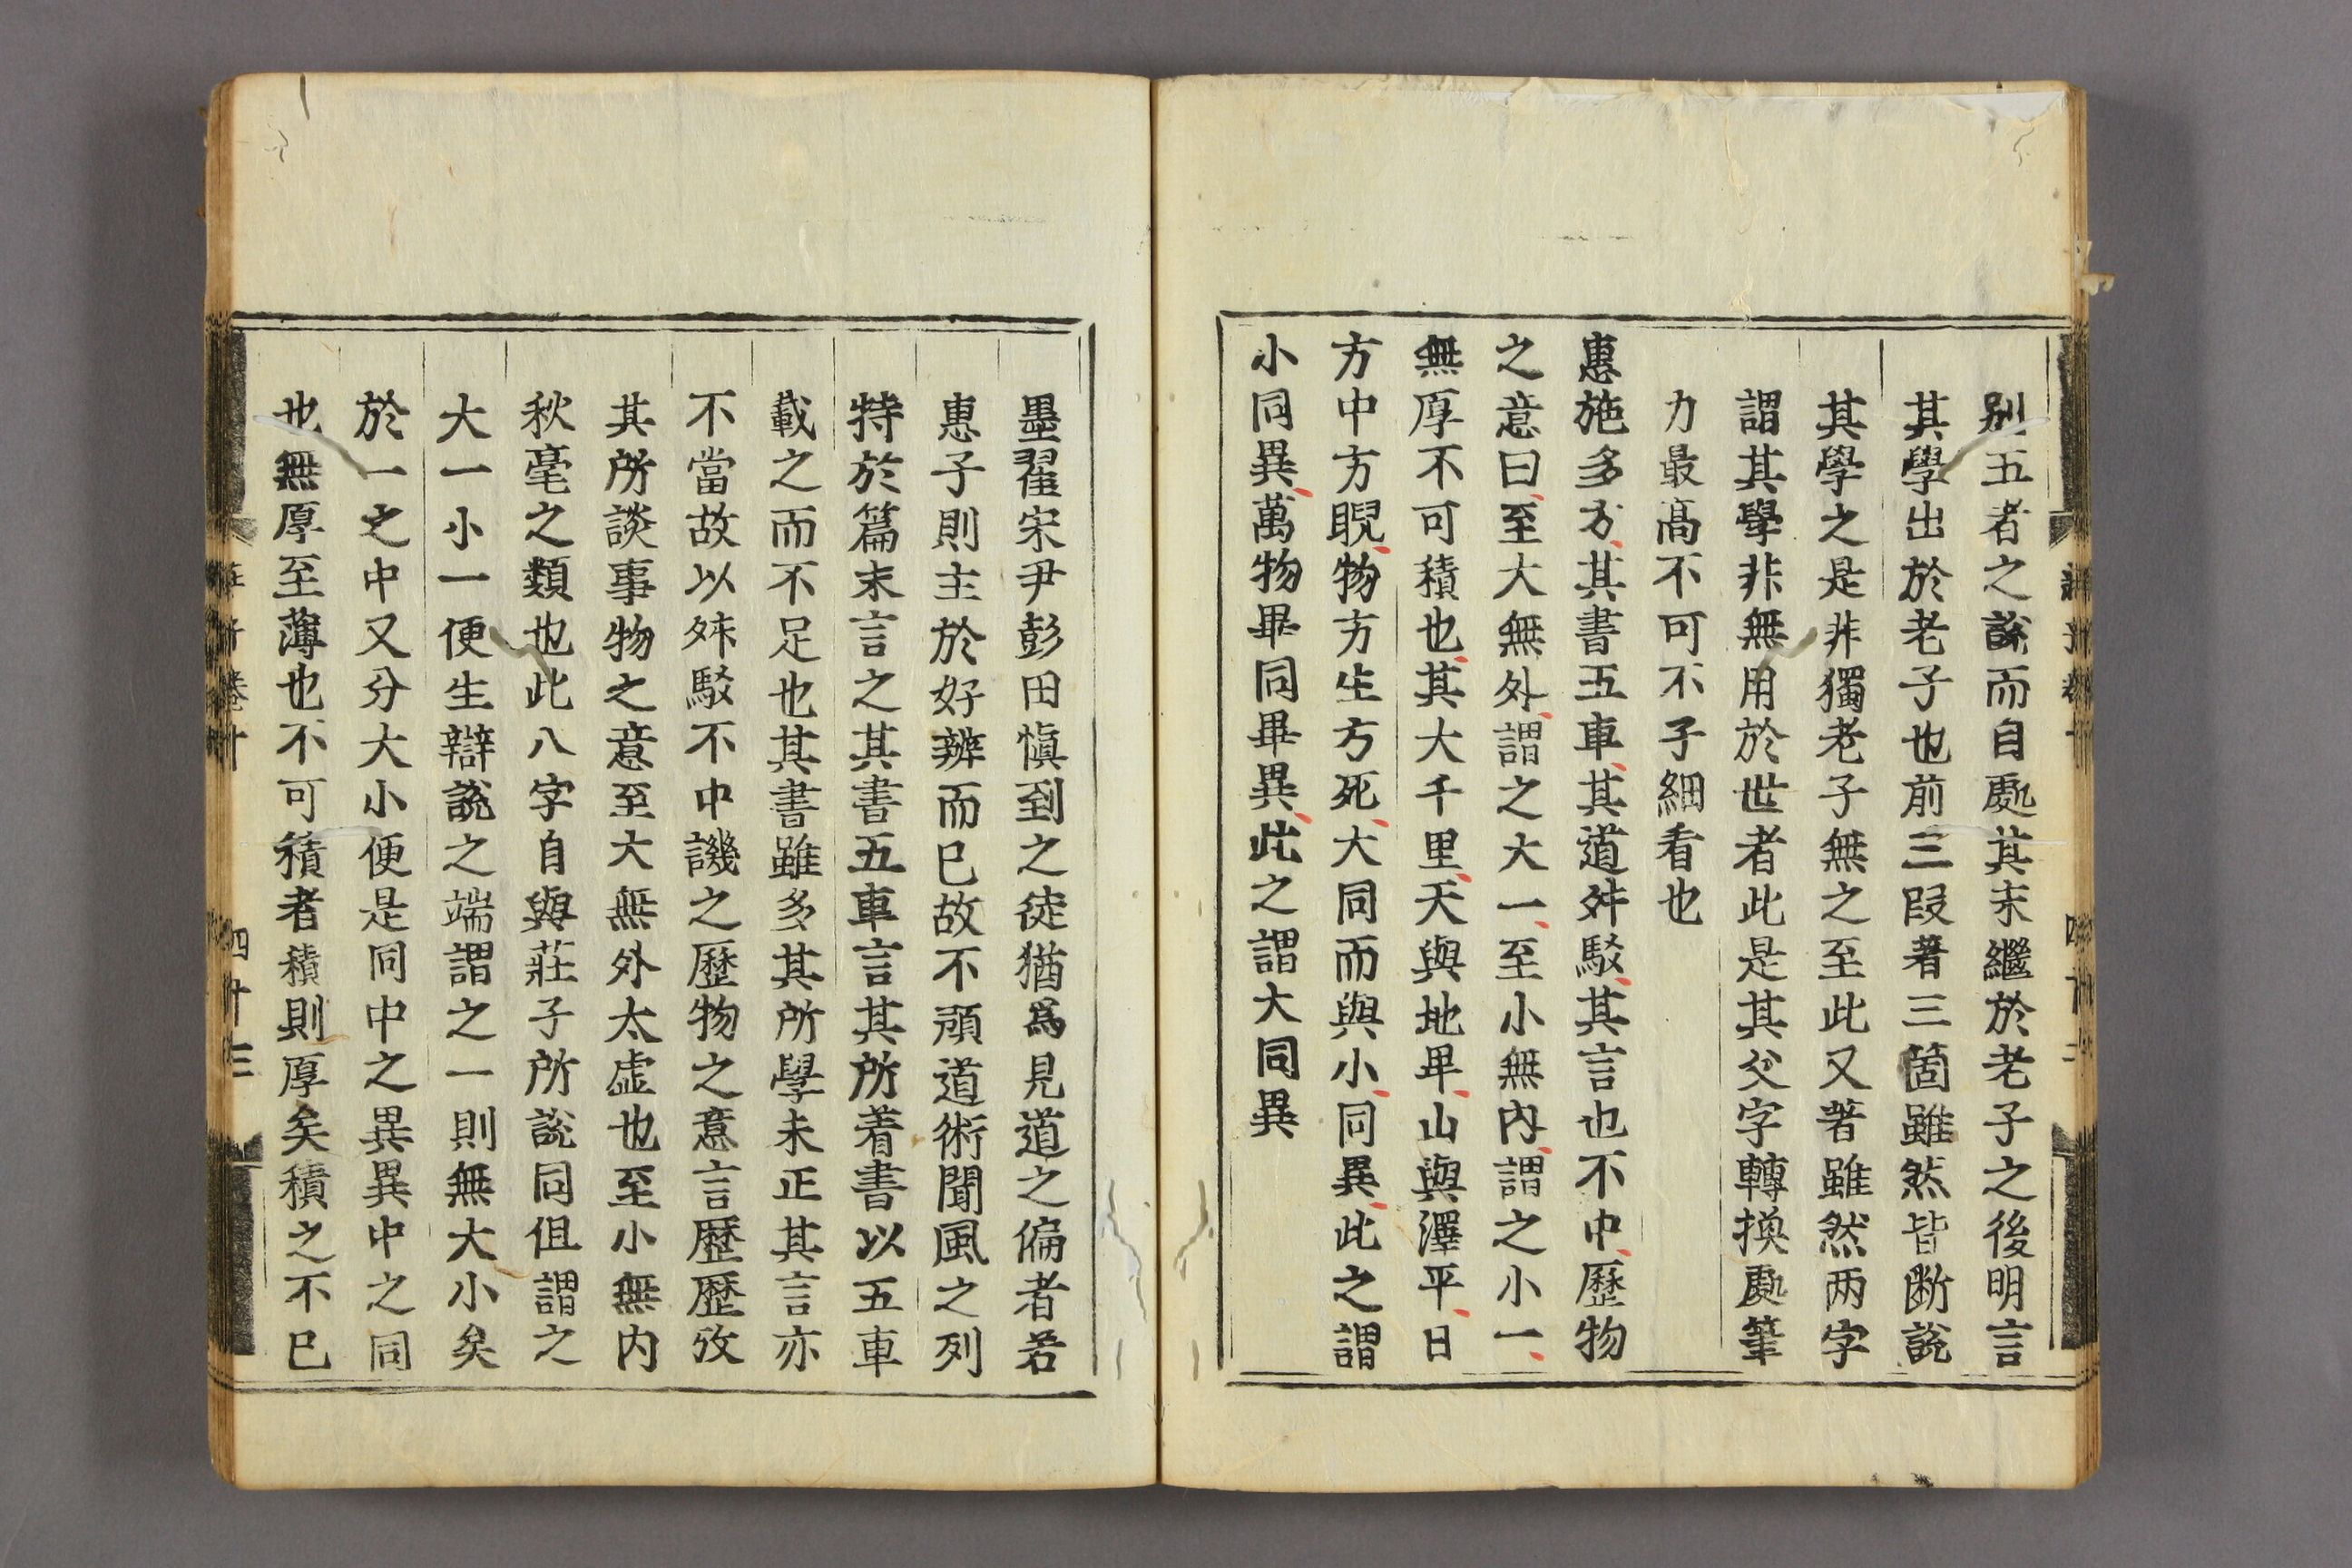 別五者之說而自處其末繼於老子之後明言
其學出於老子也前三段著三箇雖然皆断說
其學之是非獨老子無之至此又著雖然两字
謂其學非無用於世者此是其文字轉換處筆
力最高不可不子細看也
惠施多方其書五車其道舛駁其言也不中歷物
之意曰至大無外謂之大一至小無內謂之小一
無厚不可積也其大千里天與地卑山與澤平日
方中方睨物方生方死大同而與小同異此之謂
小同異萬物畢同畢異此之謂大同異
墨翟宋尹彭田慎到之徒猶為見道之偏者若
惠子則主於好辨而已故不預道術聞風之列
特於篇末言之其書五車言其所着書以五車
載之而不足也其書雖多其所學未正其言亦
不當故以舛駁不中譏之歷物之意言歷歷攷
其所談事物之意至大無外太虛也至小無内
秋毫之類也此八字自與莊子所說同但謂之
大一小一便生辯說之端謂之一則無大小矣
於一之中又分大小便是同中之異異中之同
也無厚至薄也不可積者積則厚矣積之不已
莊子卷十
四十三